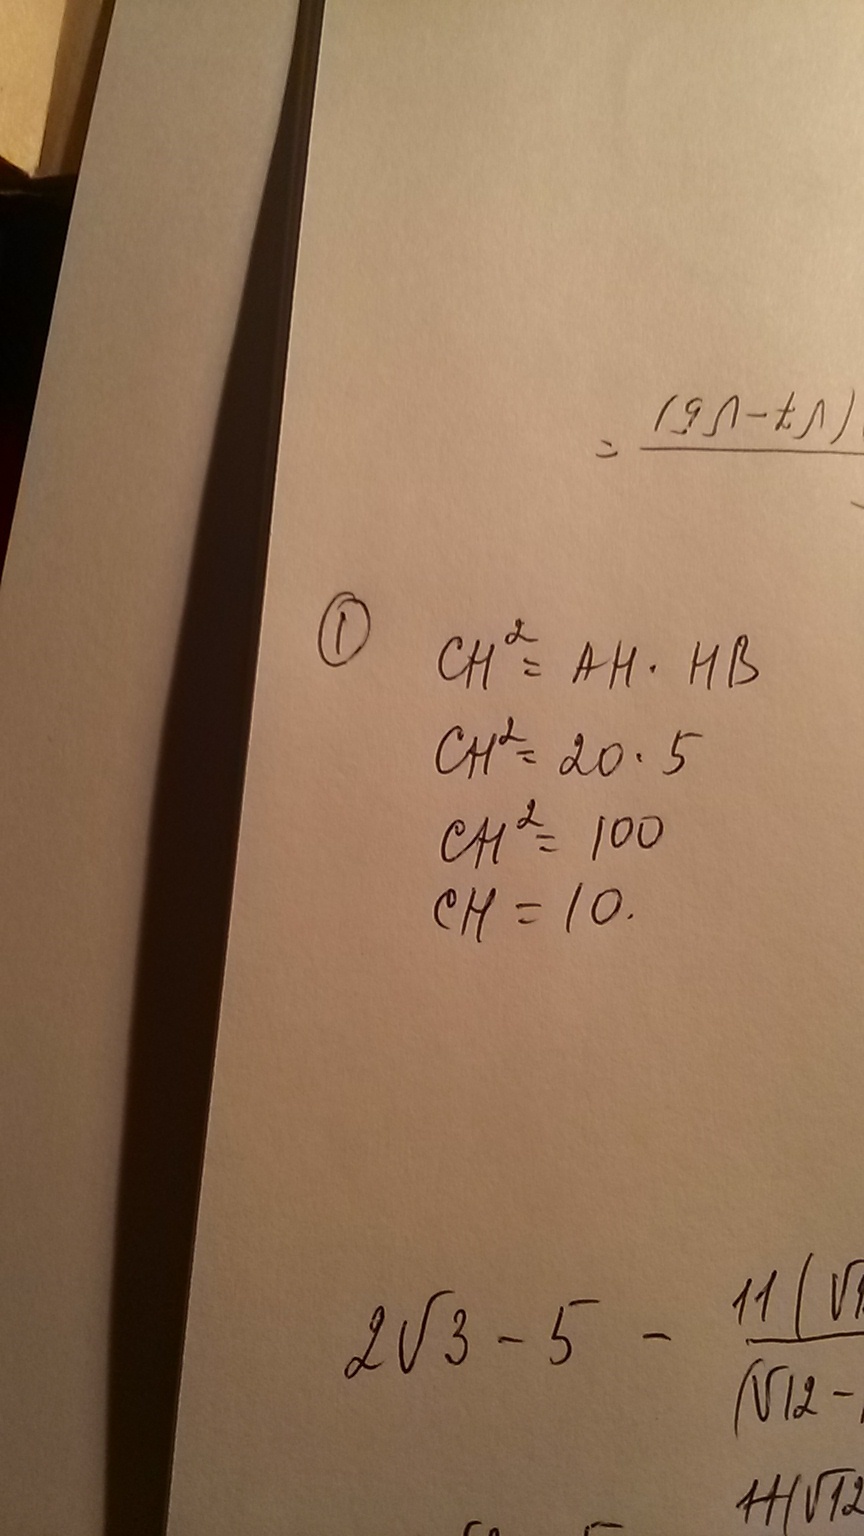 = (√7-√6)
①
CH²= AH · HB
CH²= 20 · 5
CH²= 100
CH = 10.
2√3 - 5 - 11(√1
(√12 -
11(√12